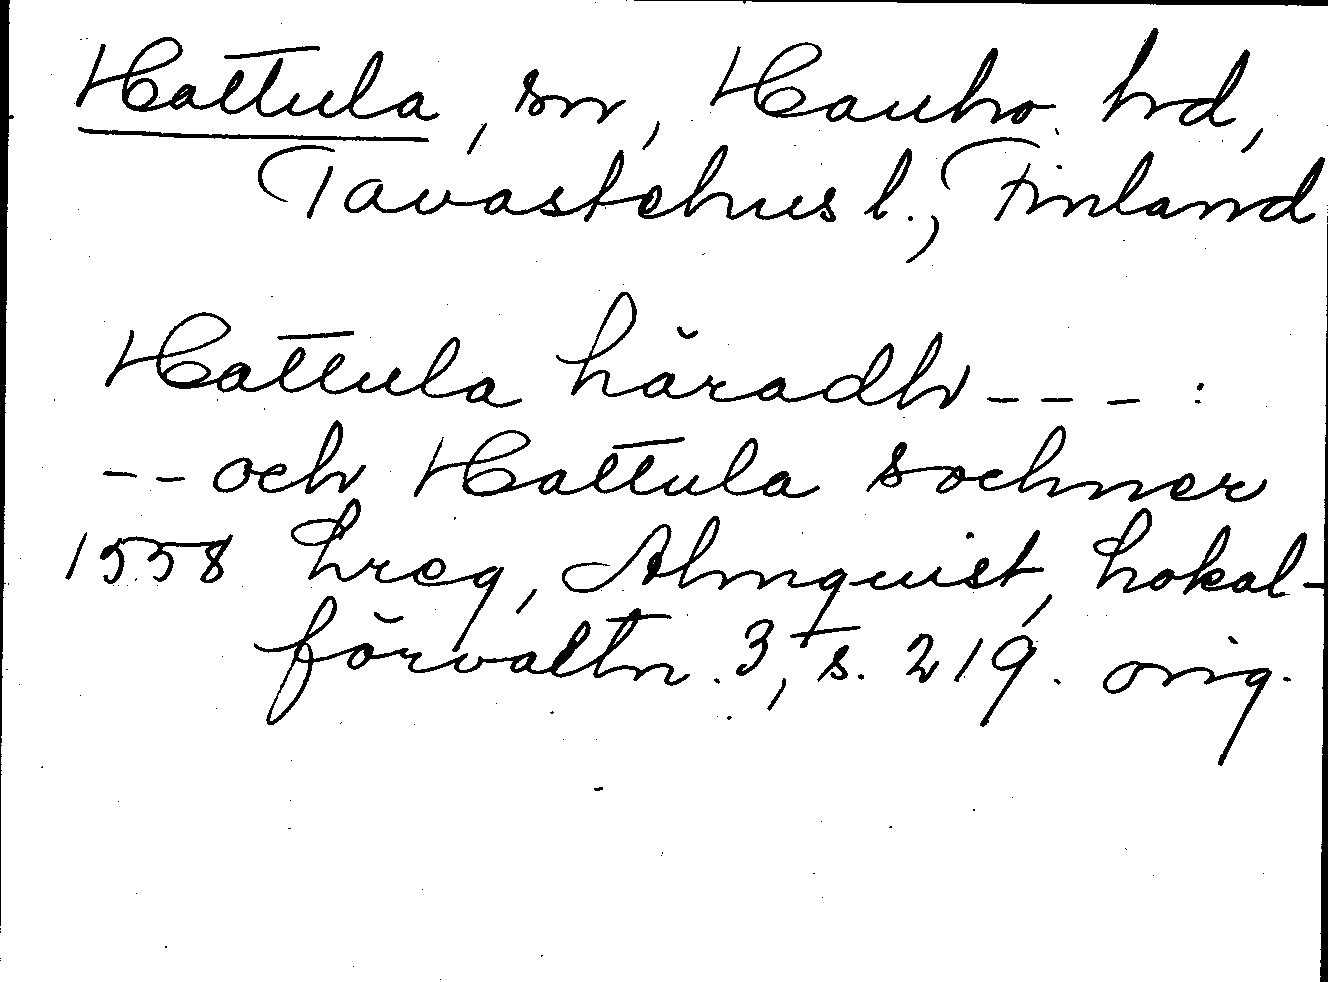 Hattula, sn, Hauho hd,
Tavastehus l., Finland
Hattula häradh --- :
-- och Hattula sochner
1558 Lreg, Almquist, Lokal-
förvaltn. 3, s. 219. orig.